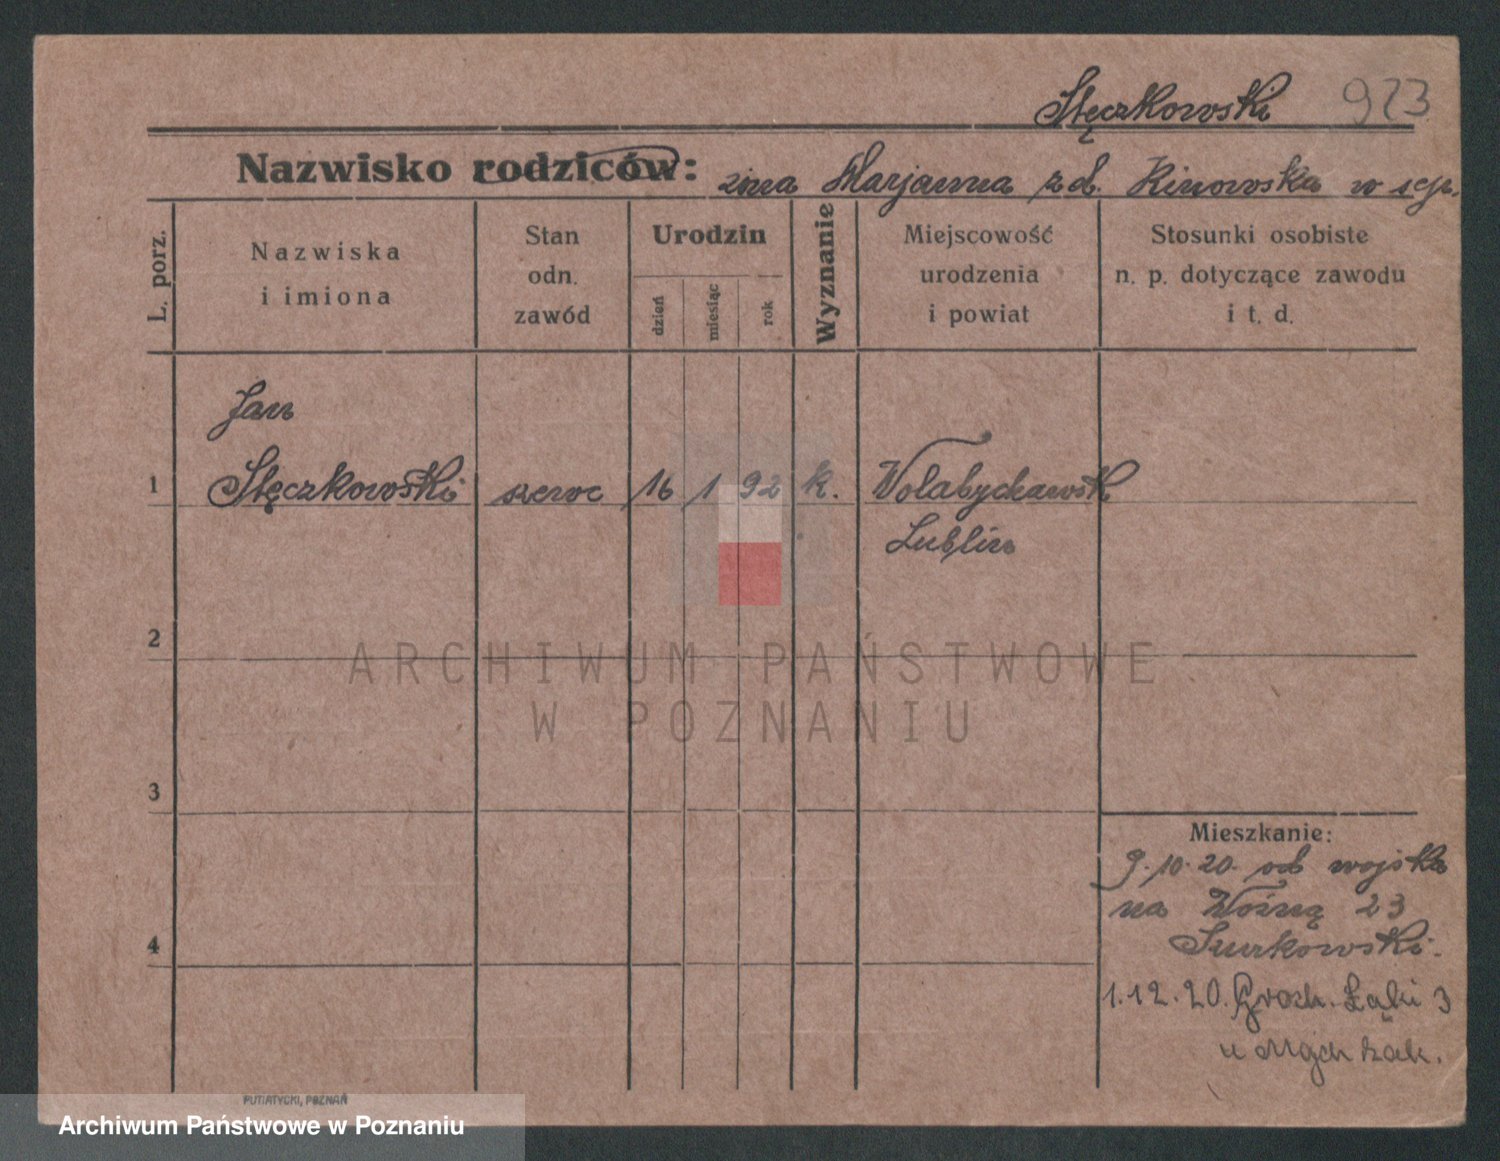 Stęczkowski 923
Nazwisko rodziców: żona Marjanna zd. Kinowska w sep.
L. porz.
Nazwiska
i imiona
Stan
odn.
zawód
Urodzin
dzień
miesiąc
rok
Wyznanie
Miejscowość
urodzenia
i powiat
Stosunki osobiste
n. p. dotyczące zawodu
i t. d.
Jan
1 Stęczkowski szewc 16 1 92 k. Wolabychawsk
Lublin
2
3
4
ARCHIWUM PAŃSTWOWE
W POZNANIU
Mieszkanie:
9.10.20. od wojska
na Woźną 23
1.12.20. Groch. Łąki 3
u
PUTIATYCKI, POZNAŃ
Archiwum Państwowe w Poznaniu